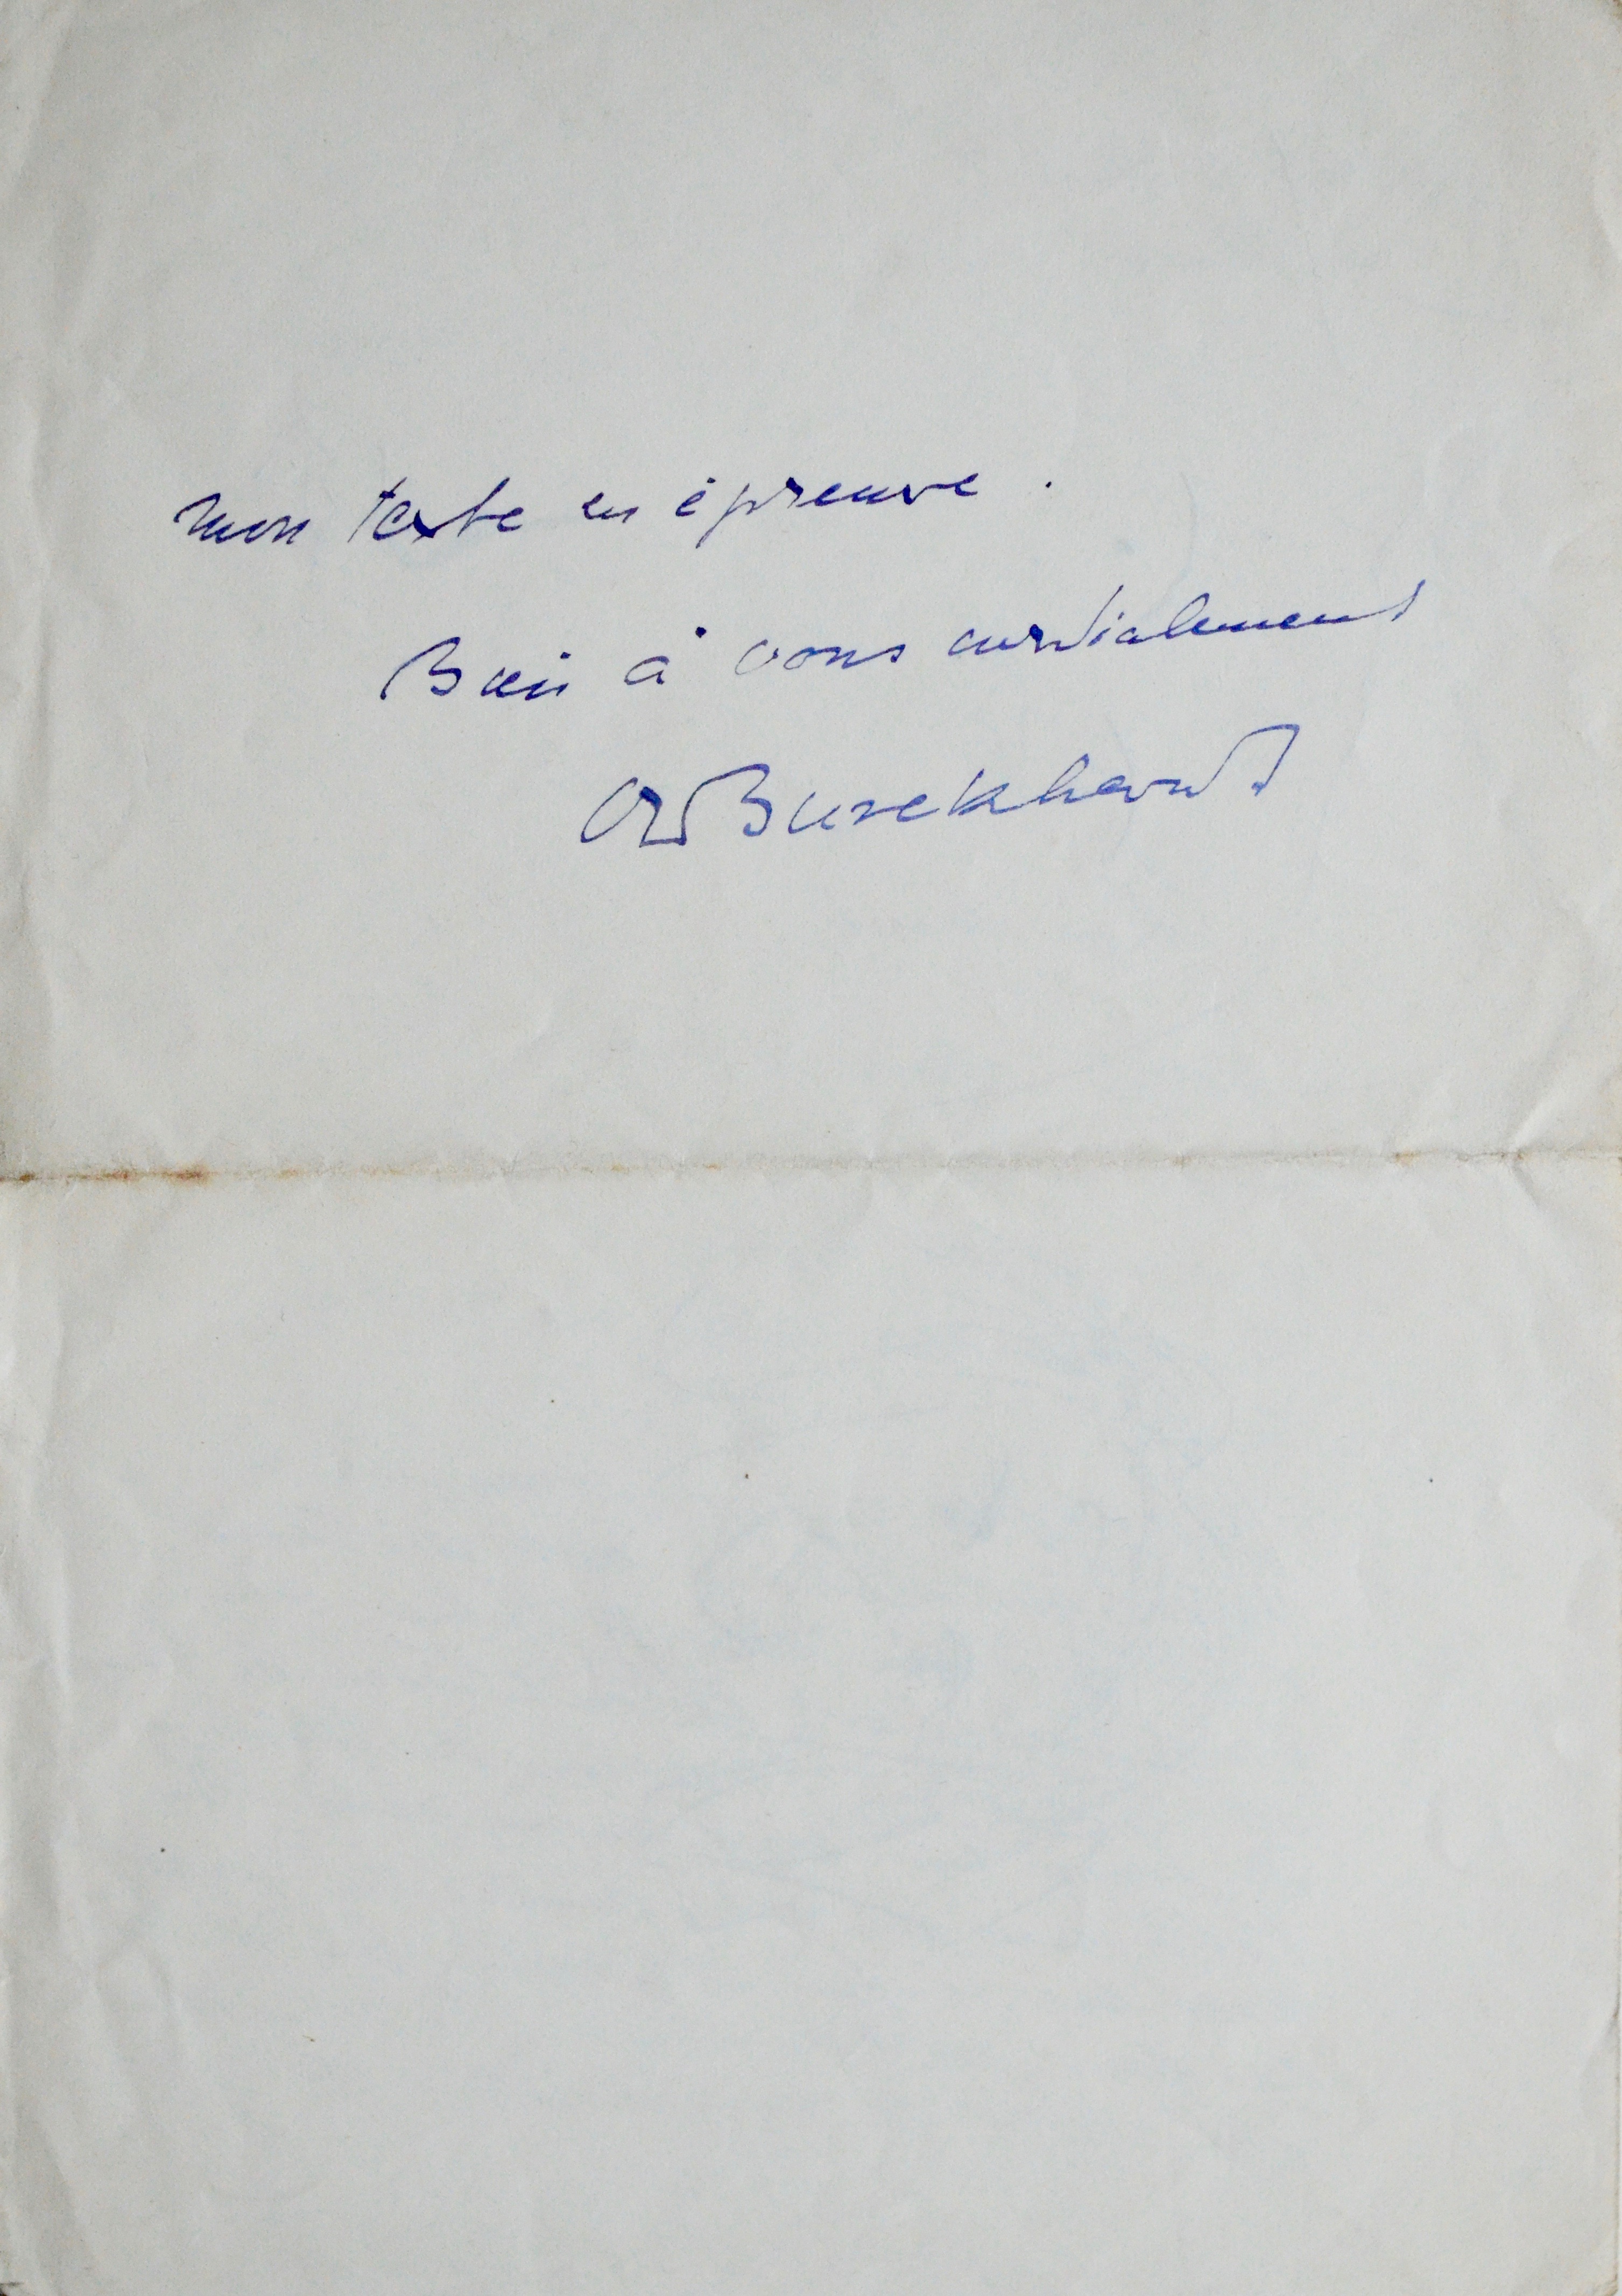 mon texte en épreuve.
Bien à vous cordialement
Burckhardt